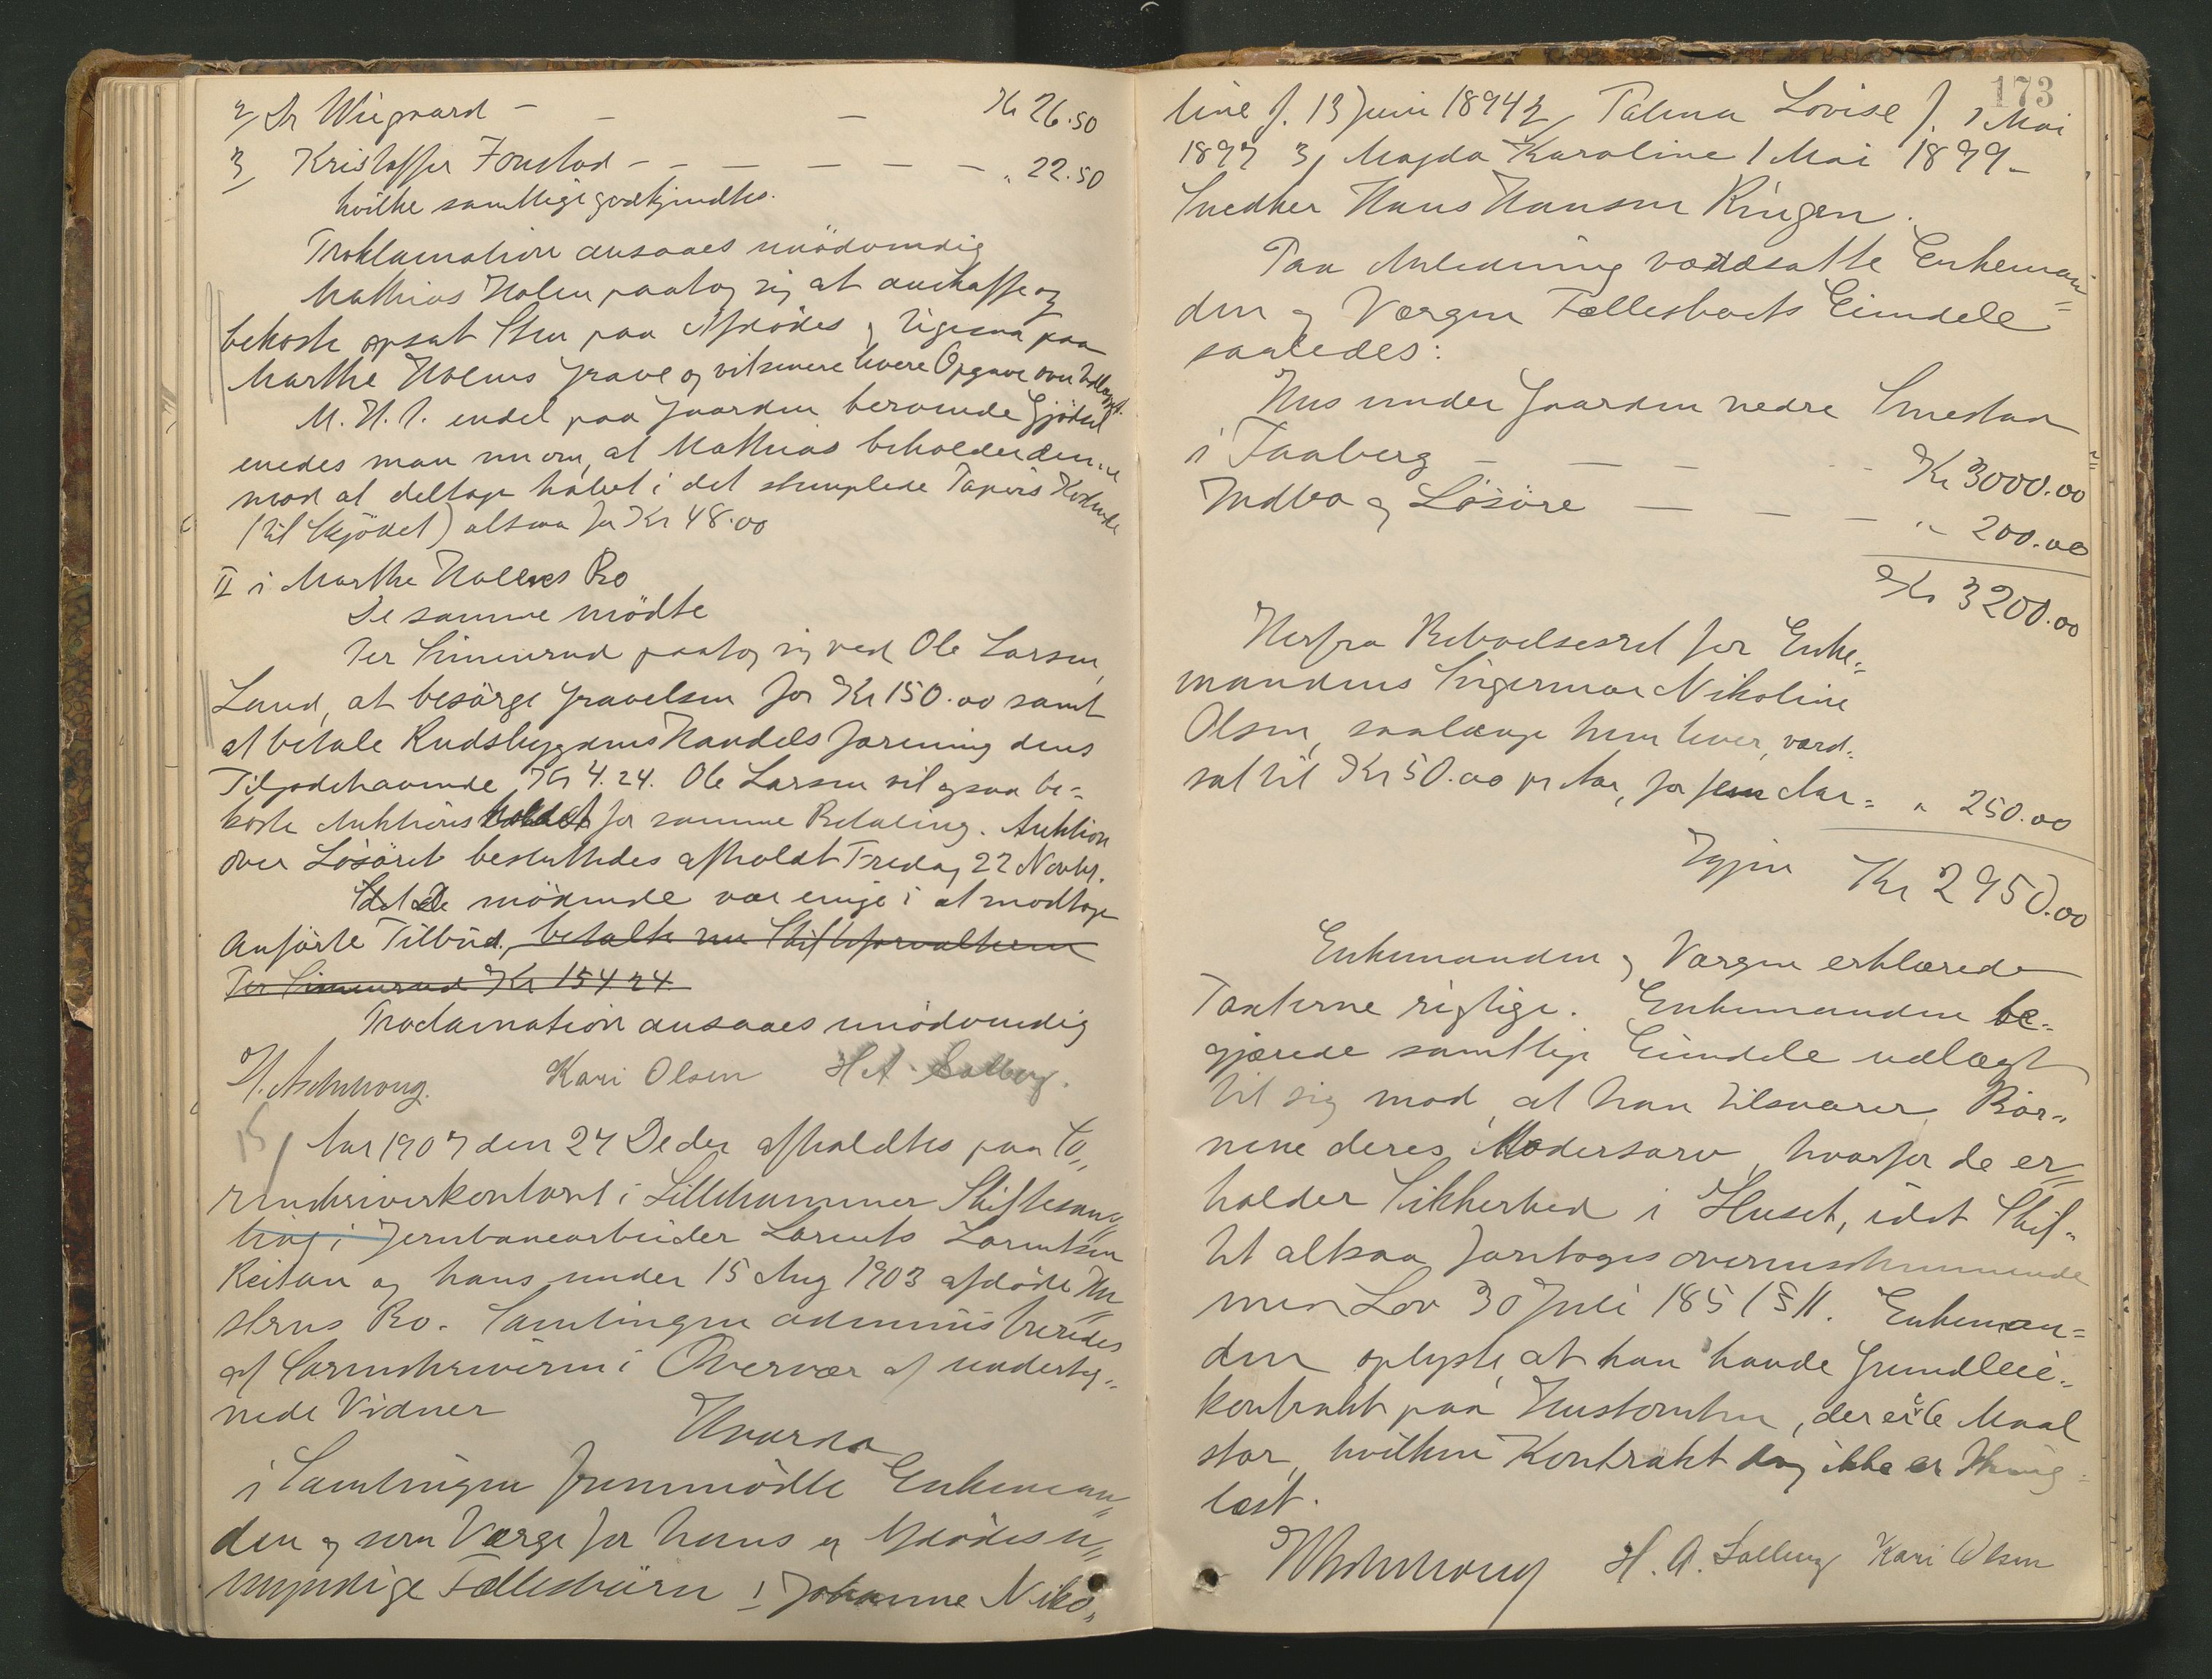 2/ Dr Wiegaard – – – Kr 26.50
3/ Kristoffer Fonstad – – – – – – – " 22.50
hvilke samtlige godkjendtes.
Proklamation ansaaes unödvendig
Mathias Holen paatog sig at anskaffe og
bekoste opsat Sten paa Afdödes og ligesaa paa
Marthe Holens Grave og vil senere levere Opgave over Udlægget.
M. H. t. endel paa Gaarden beroende Gjödsel
enedes man nu om, at Mathias beholder denne
mod at deltage halvt i det stemplede Papirs Kostende
(til Skjödet) altsaa for Kr 48.00
II i Marthe Holens Bo
De samme mödte
Per Simenrud paatog sig ved Ole Larsen
Lund, at besörge Gravölsen for Kr 150.00 samt
at betale Rudsbygdens Handelsforening dens
Tilgodehavende Kr 4.24. Ole Larsen vil ogsaa be-
koste Auktionsholdet for samme Betaling. Auktion
over Lösöret besluttedes afholdt Fredag 22 Novbr.
De mödende var enige i at modtage
Anförte Tilbud, betalte nu Skifteforvalteren
Per Simenrud Kr 154 24
Proclamation ansaaes unödvendig
Kari Olsen H A. Salberg.
15/ Aar 1907 den 27 Decbr afholdtes paa So-
renskriverkontoret i Lillehammer Skiftesam-
ling i Jernbanearbeider Laurits Lauritsen
Reitan og hans under 15 Aug 1903 afdöde Hu-
strus Bo. Samlingen administreredes
af Sorenskriveren i Overvær af underteg-
nede Vidner
Hvorda
i Samlingen fremmödte Enkeman-
den og som Værge for hans og Afdödes u-
myndige Fællesbörn 1 Johanne Niko-
173
line f. 13 Juni 1894 2, Palma Lovise f. 7 Mai
1897 3, Magda Karoline 1 Mai 1899 –
Snedker Hans Hansen Ringen.
Paa Anledning værdsatte Enkeman-
den og Værgen Fællesboets Eiendele
saaledes:
Hus under Gaarden nedre Smestad
i Faaberg – – – – Kr 3000.00
Indbo og Lösöre – – – " 200.00
Kr 3200.00
Herfra Beboelsesret for Enke-
mandens Svigermor Nikoline
Olsen, saalænge hun lever, værd-
sat til Kr 50.00 pr Aar, for fem Aar = " 250.00
Igjen Kr 2950.00
Enkemanden og Værgen erklærede
Taxterne rigtige. Enkemanden be-
gjærede samtlige Eiendele udlagt
til sig mod, at han tilsvarer Bör-
nene deres Mödrearv, hvorfor de er-
holder Sikkerhed i Huset, idet Skif-
tet altsaa foretages overensstemmende
med Lov 30 Juli 1851 § 11. Enkeman-
den oplyste, at han havde Grundleie-
kontrakt paa Hustomten, der er Maal
stor, hvilken Kontrakt dog ikke er thing-
læst.
H. A. Salberg Kari Olsen